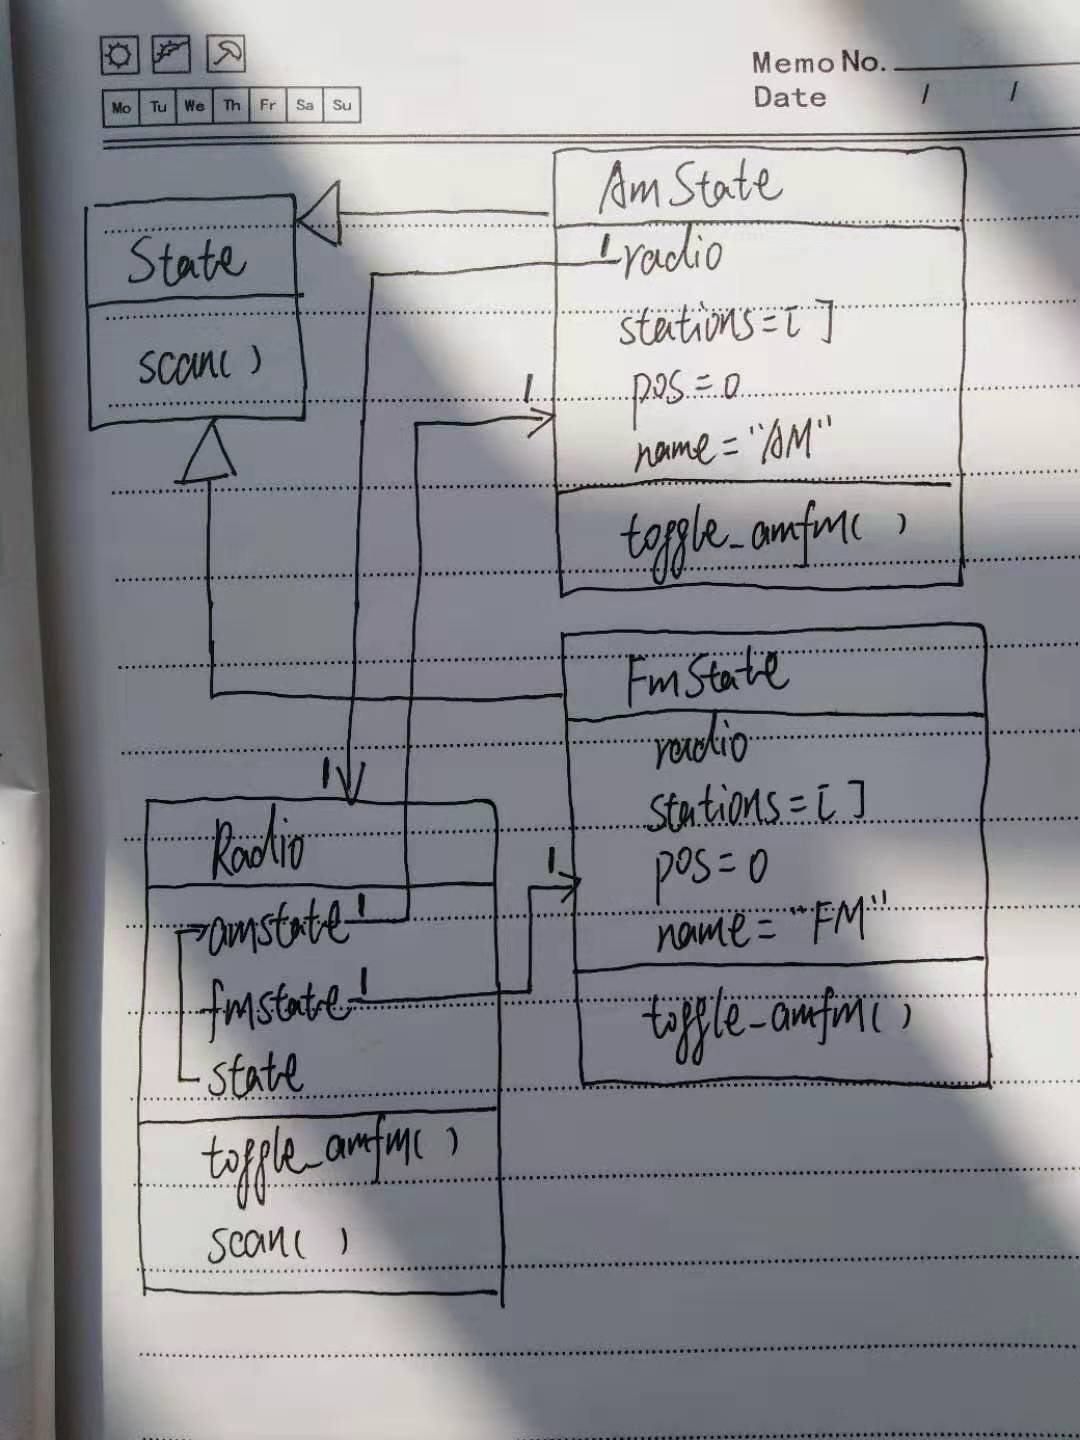 Memo No.
Date / /
Mo Tu We Th Fr Sa Su
State
scan( )
AmState
1
radio
stations=[ ]
pos=0
1
name="AM"
toggle_amfm( )
FmState
radio
stations=[ ]
pos=0
1
name="FM"
toggle_amfm( )
1
Radio
amstate 1
fmstate 1
state
toggle_amfm( )
scan( )